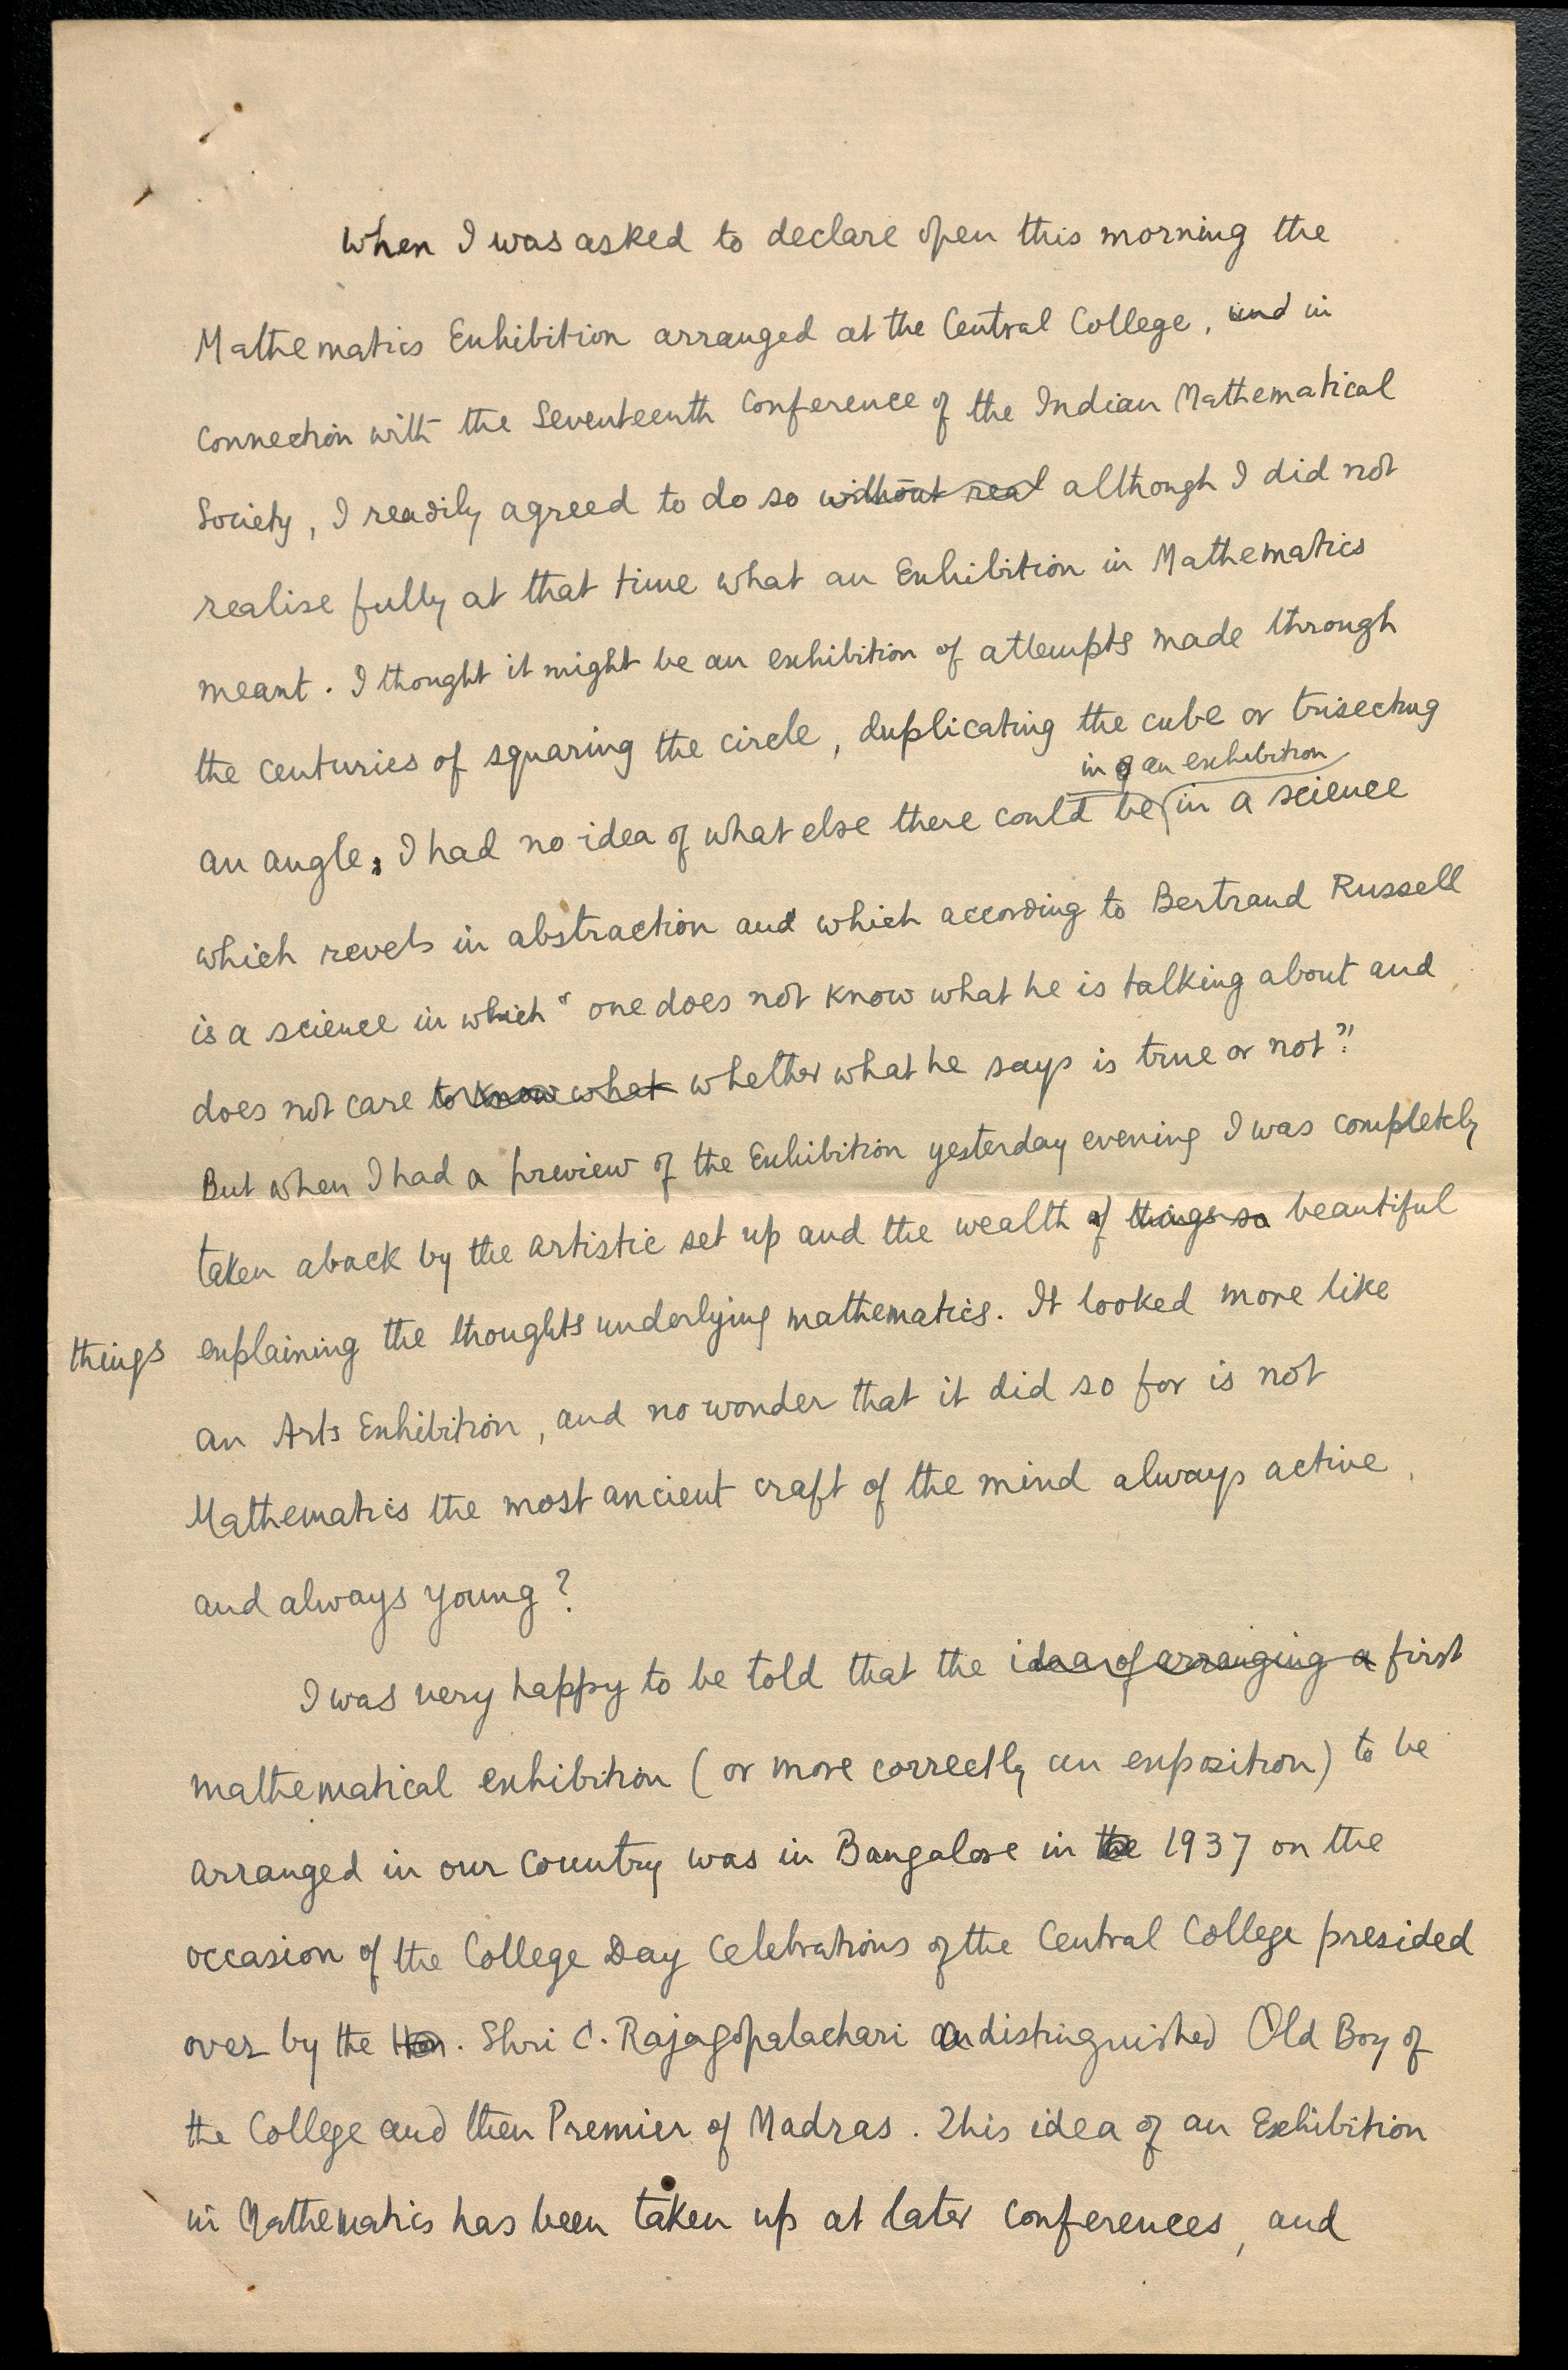 When I was asked to declare open this morning the
Mathematics Exhibition arranged at the Central College, in
connection with the Seventeenth Conference of the Indian Mathematical
Society, I readily agreed to do so without real although I did not
realise fully at that time what an Exhibition in Mathematics
meant. I thought it might be an exhibition of attempts made through
the centuries of squaring the circle, duplicating the cube or trisecting
in an exhibition
an angle, I had no idea of what else there could be in a science
which revels in abstraction and which according to Bertrand Russell
is a science in which "one does not know what he is talking about and
does not care to know what whether what he says is true or not".
But when I had a preview of the Exhibition yesterday evening I was completely
taken aback by the artistic set up and the wealth of things so beautiful
things explaining the thoughts underlying mathematics. It looked more like
an Arts Exhibition, and no wonder that it did so for is not
Mathematics the most ancient craft of the mind always active,
and always young?
I was very happy to be told that the idea of arranging a first
mathematical exhibition (or more correctly an exposition) to be
arranged in our country was in Bangalore in the 1937 on the
occasion of the College Day Celebrations of the Central College presided
over by the Hon. Shri C. Rajagopalachari a distinguished Old Boy of
the College and then Premier of Madras. This idea of an Exhibition
in Mathematics has been taken up at later conferences, and